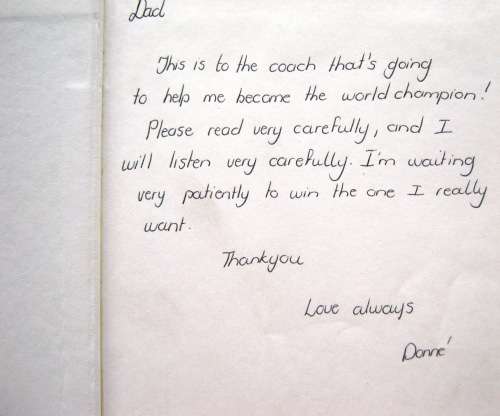 Dad
This is to the coach that's going
to help me become the world champion!
Please read very carefully, and I
will listen very carefully. I'm waiting
very patiently to win the one I really
want.
Thankyou
Love always
Donné